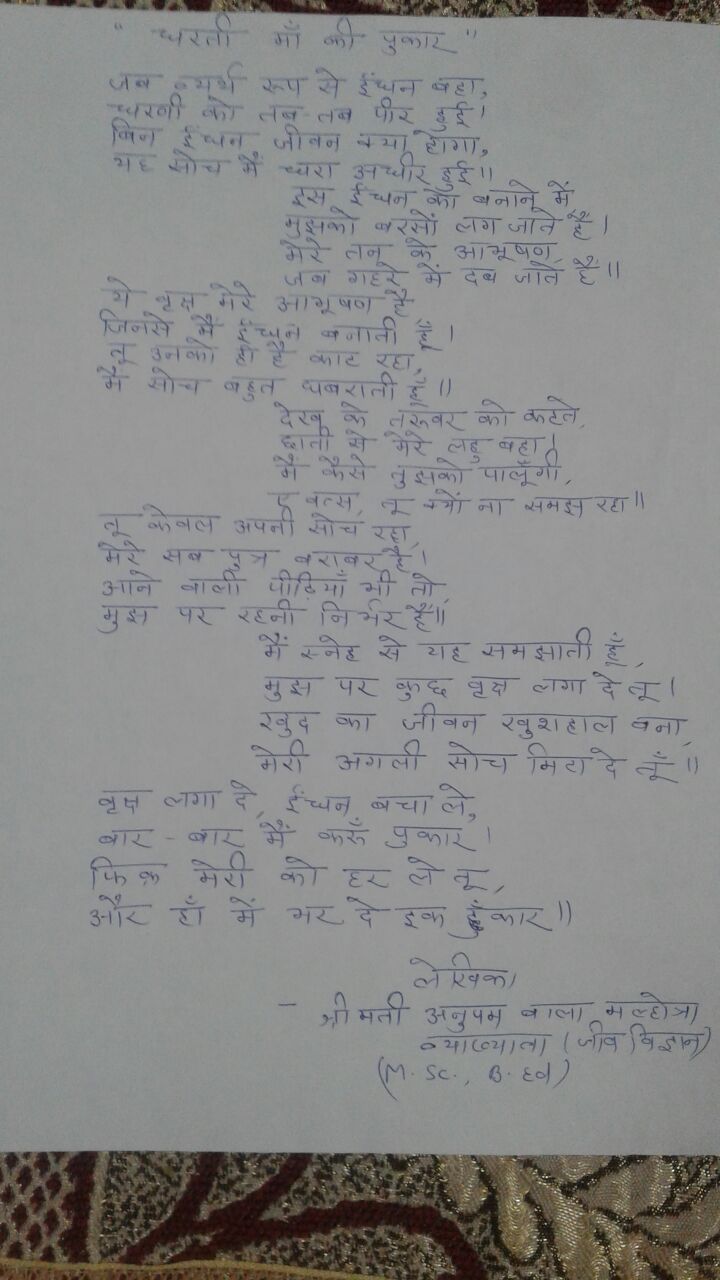 " धरती माँ की पुकार "
जब व्यर्थ रूप से ईंधन बहा,
धरणी को तब-तब पीर हुई।
बिन ईंधन जीवन क्या होगा,
यह सोच में धरा अधीर हुई॥
इस ईंधन को बनाने में
मुझको बरसों लग जाते हैं।
मेरे तन के आभूषण,
जब गहरे में दब जाते हैं॥
ये वृक्ष मेरे आभूषण हैं
जिनसे मैं ईंधन बनाती हूँ।
तू उनको ही है काट रहा,
मैं सोच बहुत घबराती हूँ॥
देख के तरुवर को कटते,
छाती से मेरे लहू बहा।
मैं कैसे तुझको पालूँगी,
ए वत्स, तू क्यों ना समझ रहा॥
तू केवल अपनी सोच रहा,
मेरे सब पुत्र बराबर हैं।
आने वाली पीढ़ियाँ भी तो,
मुझ पर रहनी निर्भर हैं॥
मैं स्नेह से यह समझाती हूँ,
मुझ पर कुछ वृक्ष लगा दे तू।
खुद का जीवन खुशहाल बना,
मेरी अगली सोच मिटा दे तूँ॥
वृक्ष लगा दे, ईंधन बचा ले,
बार-बार मैं करूँ पुकार।
फिक्र मेरी को हर ले तू,
और हाँ में भर दे इक हुंकार॥
लेखिका
- श्रीमती अनुपम बाला मल्होत्रा
व्याख्याता (जीव विज्ञान)
(M. Sc., B. Ed)